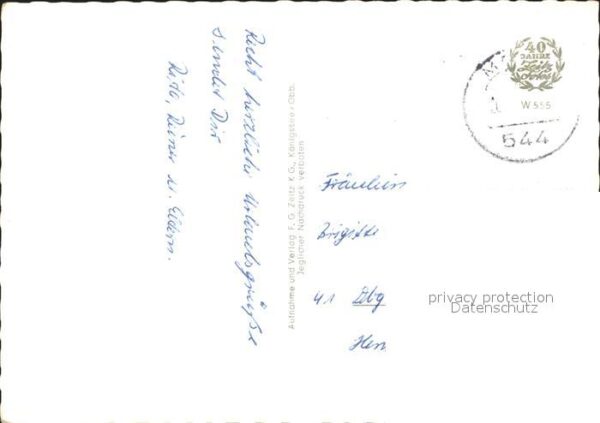 Recht herzliche Urlaubsgrüße
sendet Dir
Rita, Rainer u. Eltern.
Aufnahme und Verlag F. G. Zeitz K G., Königssee / Obb.
Jeglicher Nachdruck verboten
40
JAHRE
Zeitz
Fotos
W 555
544
Fräulein
Brigitte
41 Dbg
privacy protection
Datenschutz